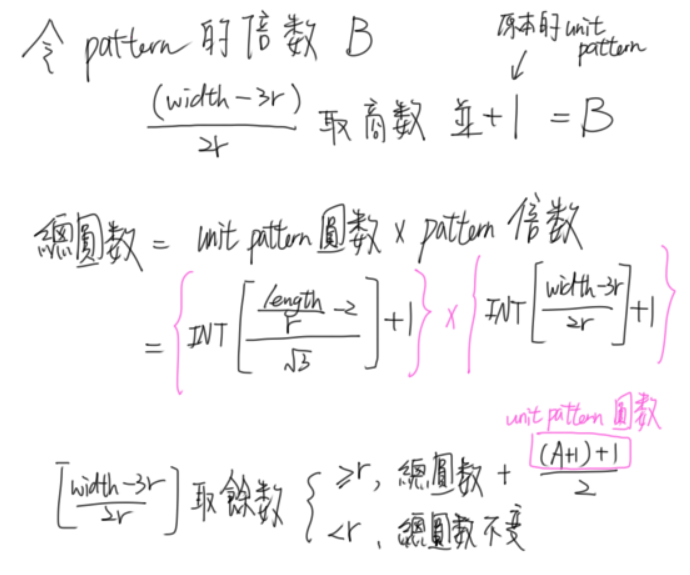 令 pattern 的倍數 B
原本的 unit pattern
↓
(width-3r)/2r 取商數 並+1 = B
總圓數 = unit pattern 圓數 × pattern 倍數
= {INT[(length/r - 2)/√3]+1} × {INT[(width-3r)/2r]+1}
unit pattern 圓數
[(width-3r)/2r] 取餘數 { ≥r, 總圓數 + ((A+1)+1)/2
<r, 總圓數不變